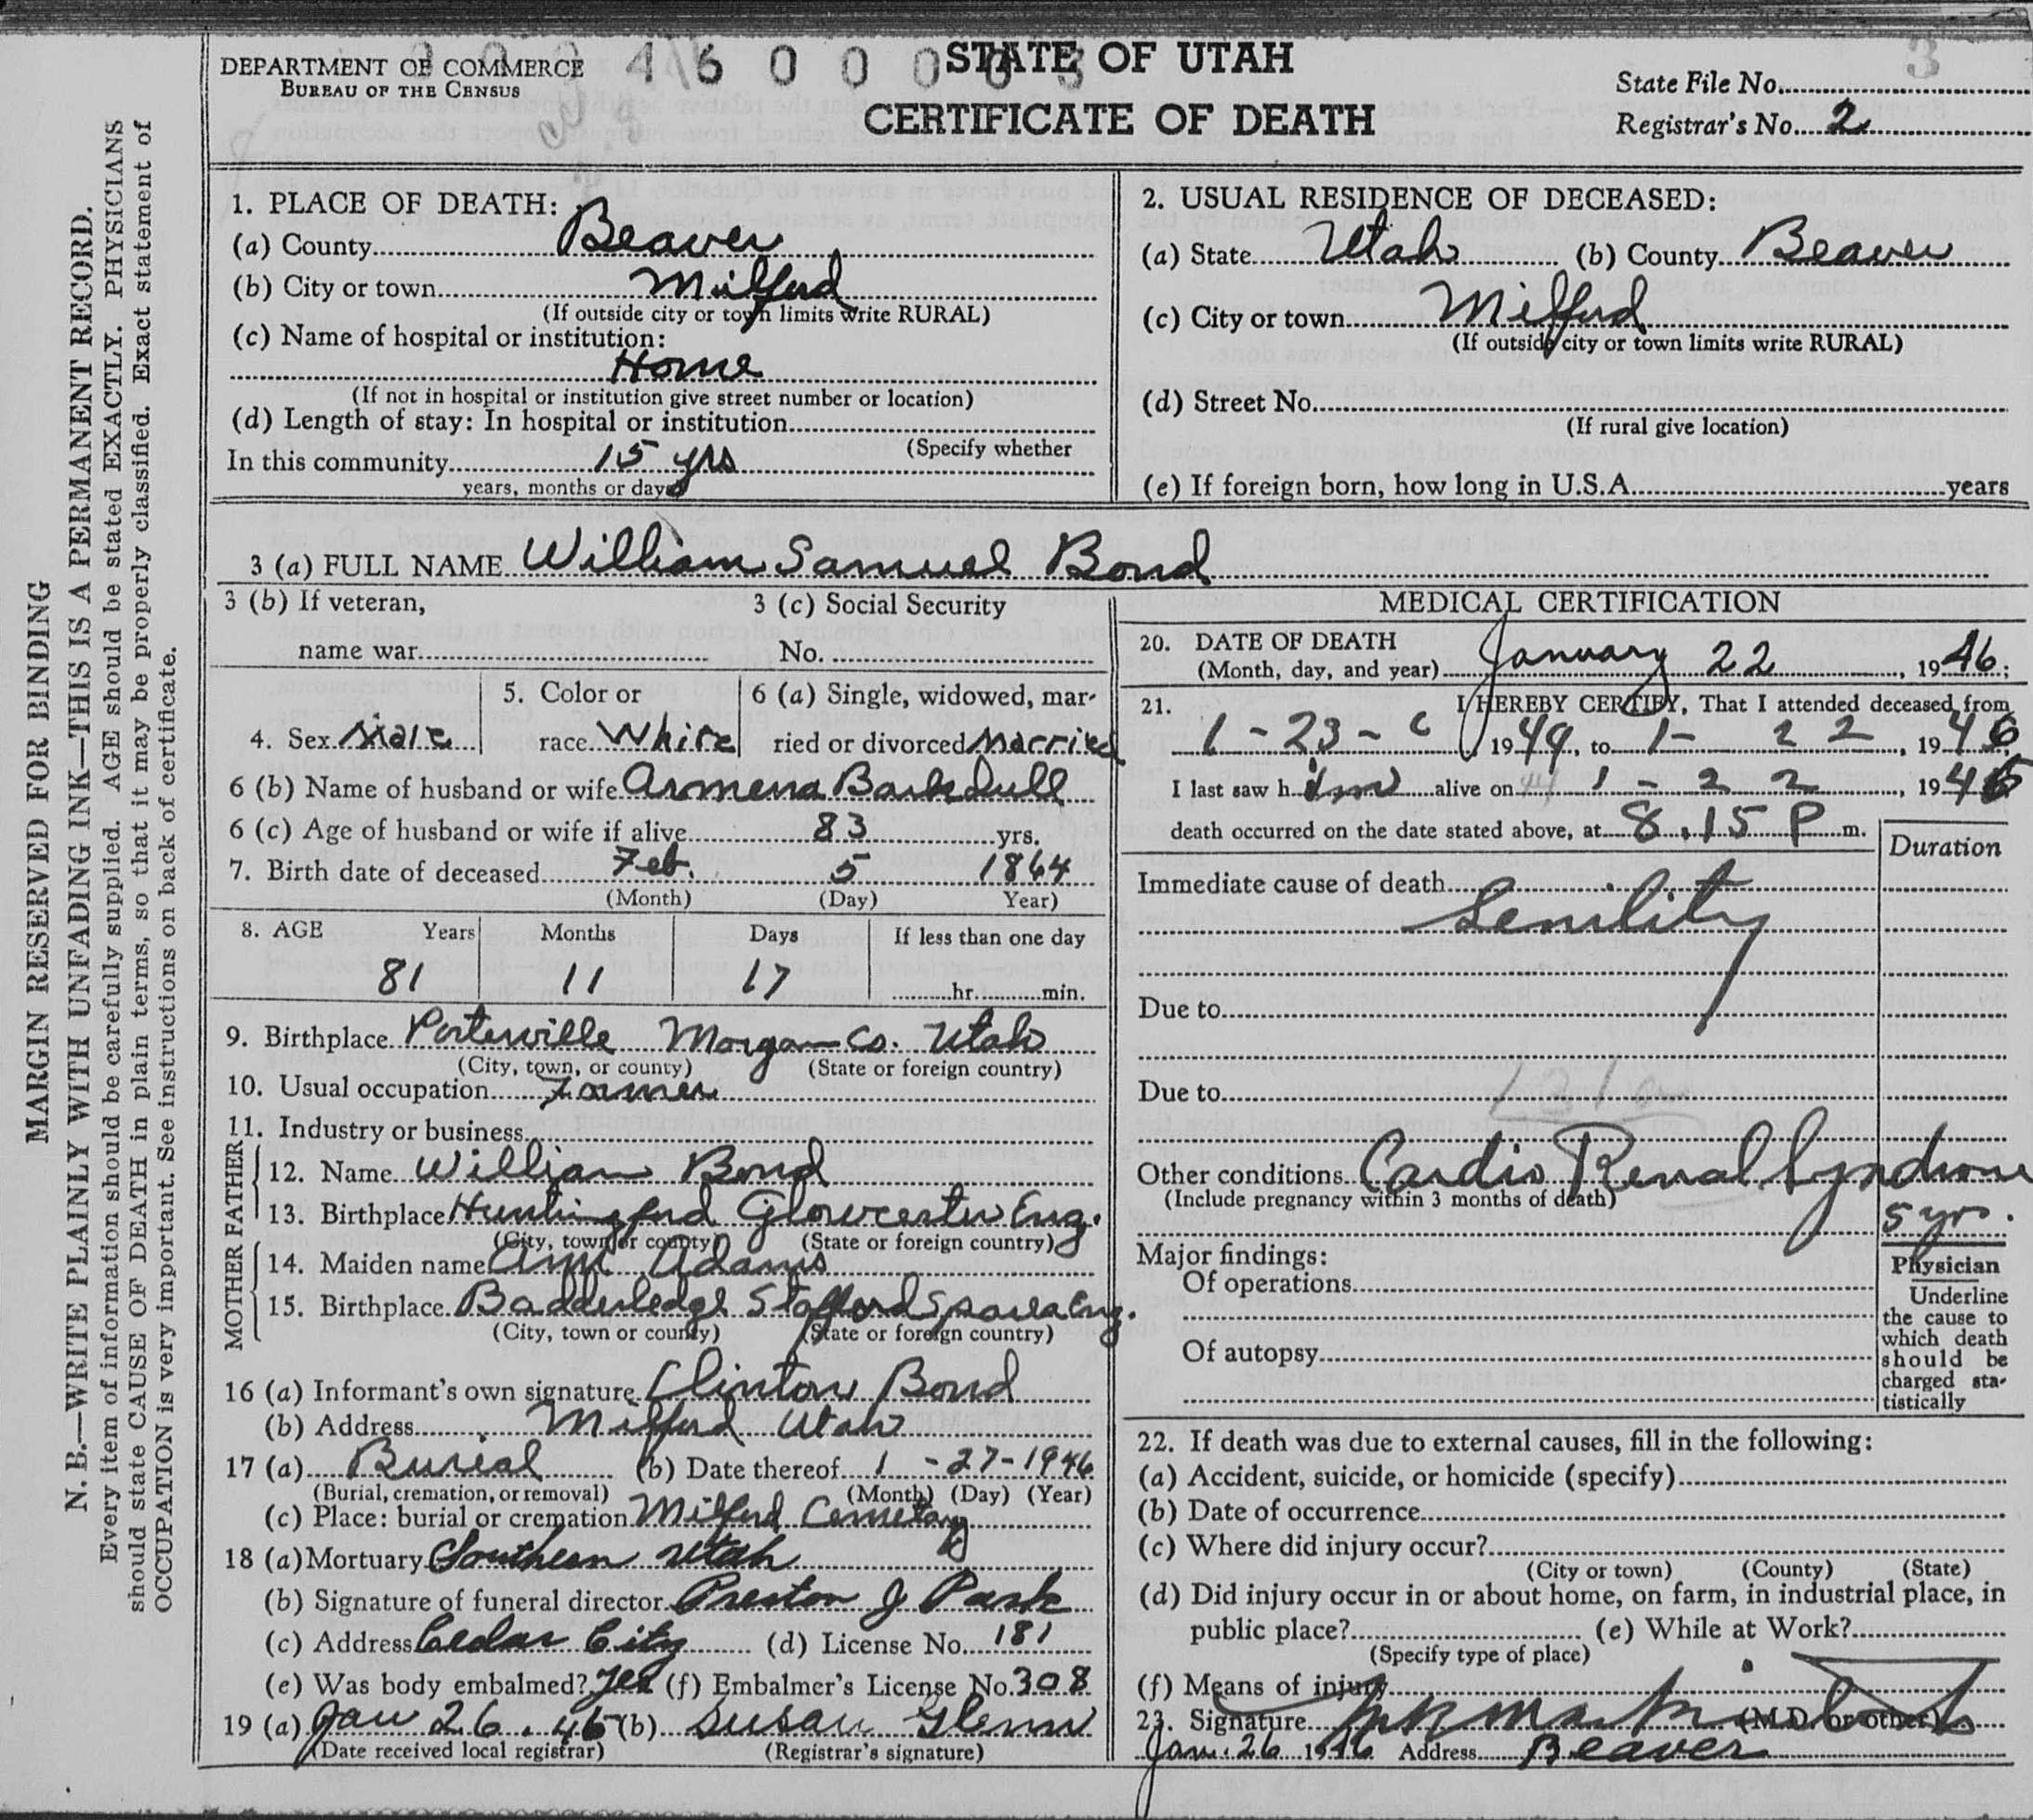 MARGIN RESERVED FOR BINDING
N. B.—WRITE PLAINLY WITH UNFADING INK—THIS IS A PERMANENT RECORD.
Every item of information should be carefully supplied. AGE should be stated EXACTLY. PHYSICIANS
should state CAUSE OF DEATH in plain terms, so that it may be properly classified. Exact statement of
OCCUPATION is very important. See instructions on back of certificate.
DEPARTMENT OF COMMERCE
BUREAU OF THE CENSUS
STATE OF UTAH
CERTIFICATE OF DEATH
State File No. 3
Registrar's No. 2
1. PLACE OF DEATH:
(a) County Beaver
(b) City or town Milford
(If outside city or town limits write RURAL)
(c) Name of hospital or institution:
Home
(If not in hospital or institution give street number or location)
(d) Length of stay: In hospital or institution
(Specify whether
In this community 15 yrs
years, months or days)
2. USUAL RESIDENCE OF DECEASED:
(a) State Utah (b) County Beaver
(c) City or town Milford
(If outside city or town limits write RURAL)
(d) Street No.
(If rural give location)
(e) If foreign born, how long in U.S.A. years
3 (a) FULL NAME William Samuel Bond
3 (b) If veteran,
name war
3 (c) Social Security
No.
4. Sex Male
5. Color or
race White
6 (a) Single, widowed, mar-
ried or divorced Married
6 (b) Name of husband or wife Armena Barkdull
6 (c) Age of husband or wife if alive 83 yrs.
7. Birth date of deceased Feb. 5 1864
(Month) (Day) Year)
8. AGE Years Months Days If less than one day
81 11 17 hr. min.
9. Birthplace Porterville Morgan Co. Utah
(City, town, or county) (State or foreign country)
10. Usual occupation Farmer
11. Industry or business
FATHER
12. Name William Bond
13. Birthplace Gloucester Eng.
(City, town or county) (State or foreign country)
MOTHER
14. Maiden name Ann Adams
15. Birthplace Stafford Eng.
(City, town or county) (State or foreign country)
16 (a) Informant's own signature Clinton Bond
(b) Address Milford Utah
17 (a) Burial (b) Date thereof 1 - 27 - 1946
(Burial, cremation, or removal) (Month) (Day) (Year)
(c) Place: burial or cremation Milford Cemetary
18 (a) Mortuary Southern Utah
(b) Signature of funeral director Preston J
(c) Address Cedar City (d) License No. 181
(e) Was body embalmed? Yes (f) Embalmer's License No. 308
19 (a) Jan 26, 46 (b) Susan Glenn
(Date received local registrar) (Registrar's signature)
MEDICAL CERTIFICATION
20. DATE OF DEATH
(Month, day, and year) January 22, 1946;
21. I HEREBY CERTIFY, That I attended deceased from
1 - 23 - 19 to 1 - 22, 1946
I last saw him alive on 1 - 22, 1946
death occurred on the date stated above, at 8:15 P m.
Duration
Immediate cause of death
Senility
Due to
Due to
Other conditions Cardio Renal Syndrome
(Include pregnancy within 3 months of death)
5 yrs.
Major findings:
Of operations
Of autopsy
Physician
Underline
the cause to
which death
should be
charged sta-
tistically
22. If death was due to external causes, fill in the following:
(a) Accident, suicide, or homicide (specify)
(b) Date of occurrence
(c) Where did injury occur?
(City or town) (County) (State)
(d) Did injury occur in or about home, on farm, in industrial place, in
public place? (e) While at Work?
(Specify type of place)
(f) Means of injury
23. Signature (M.D. or other)
Jan. 26 1946 Address Beaver